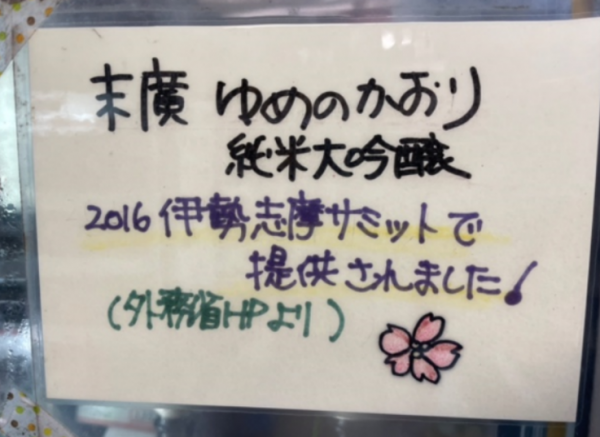 末廣 ゆめのかおり
純米大吟醸
2016 伊勢志摩サミットで
提供されました!
(外務省HPより)